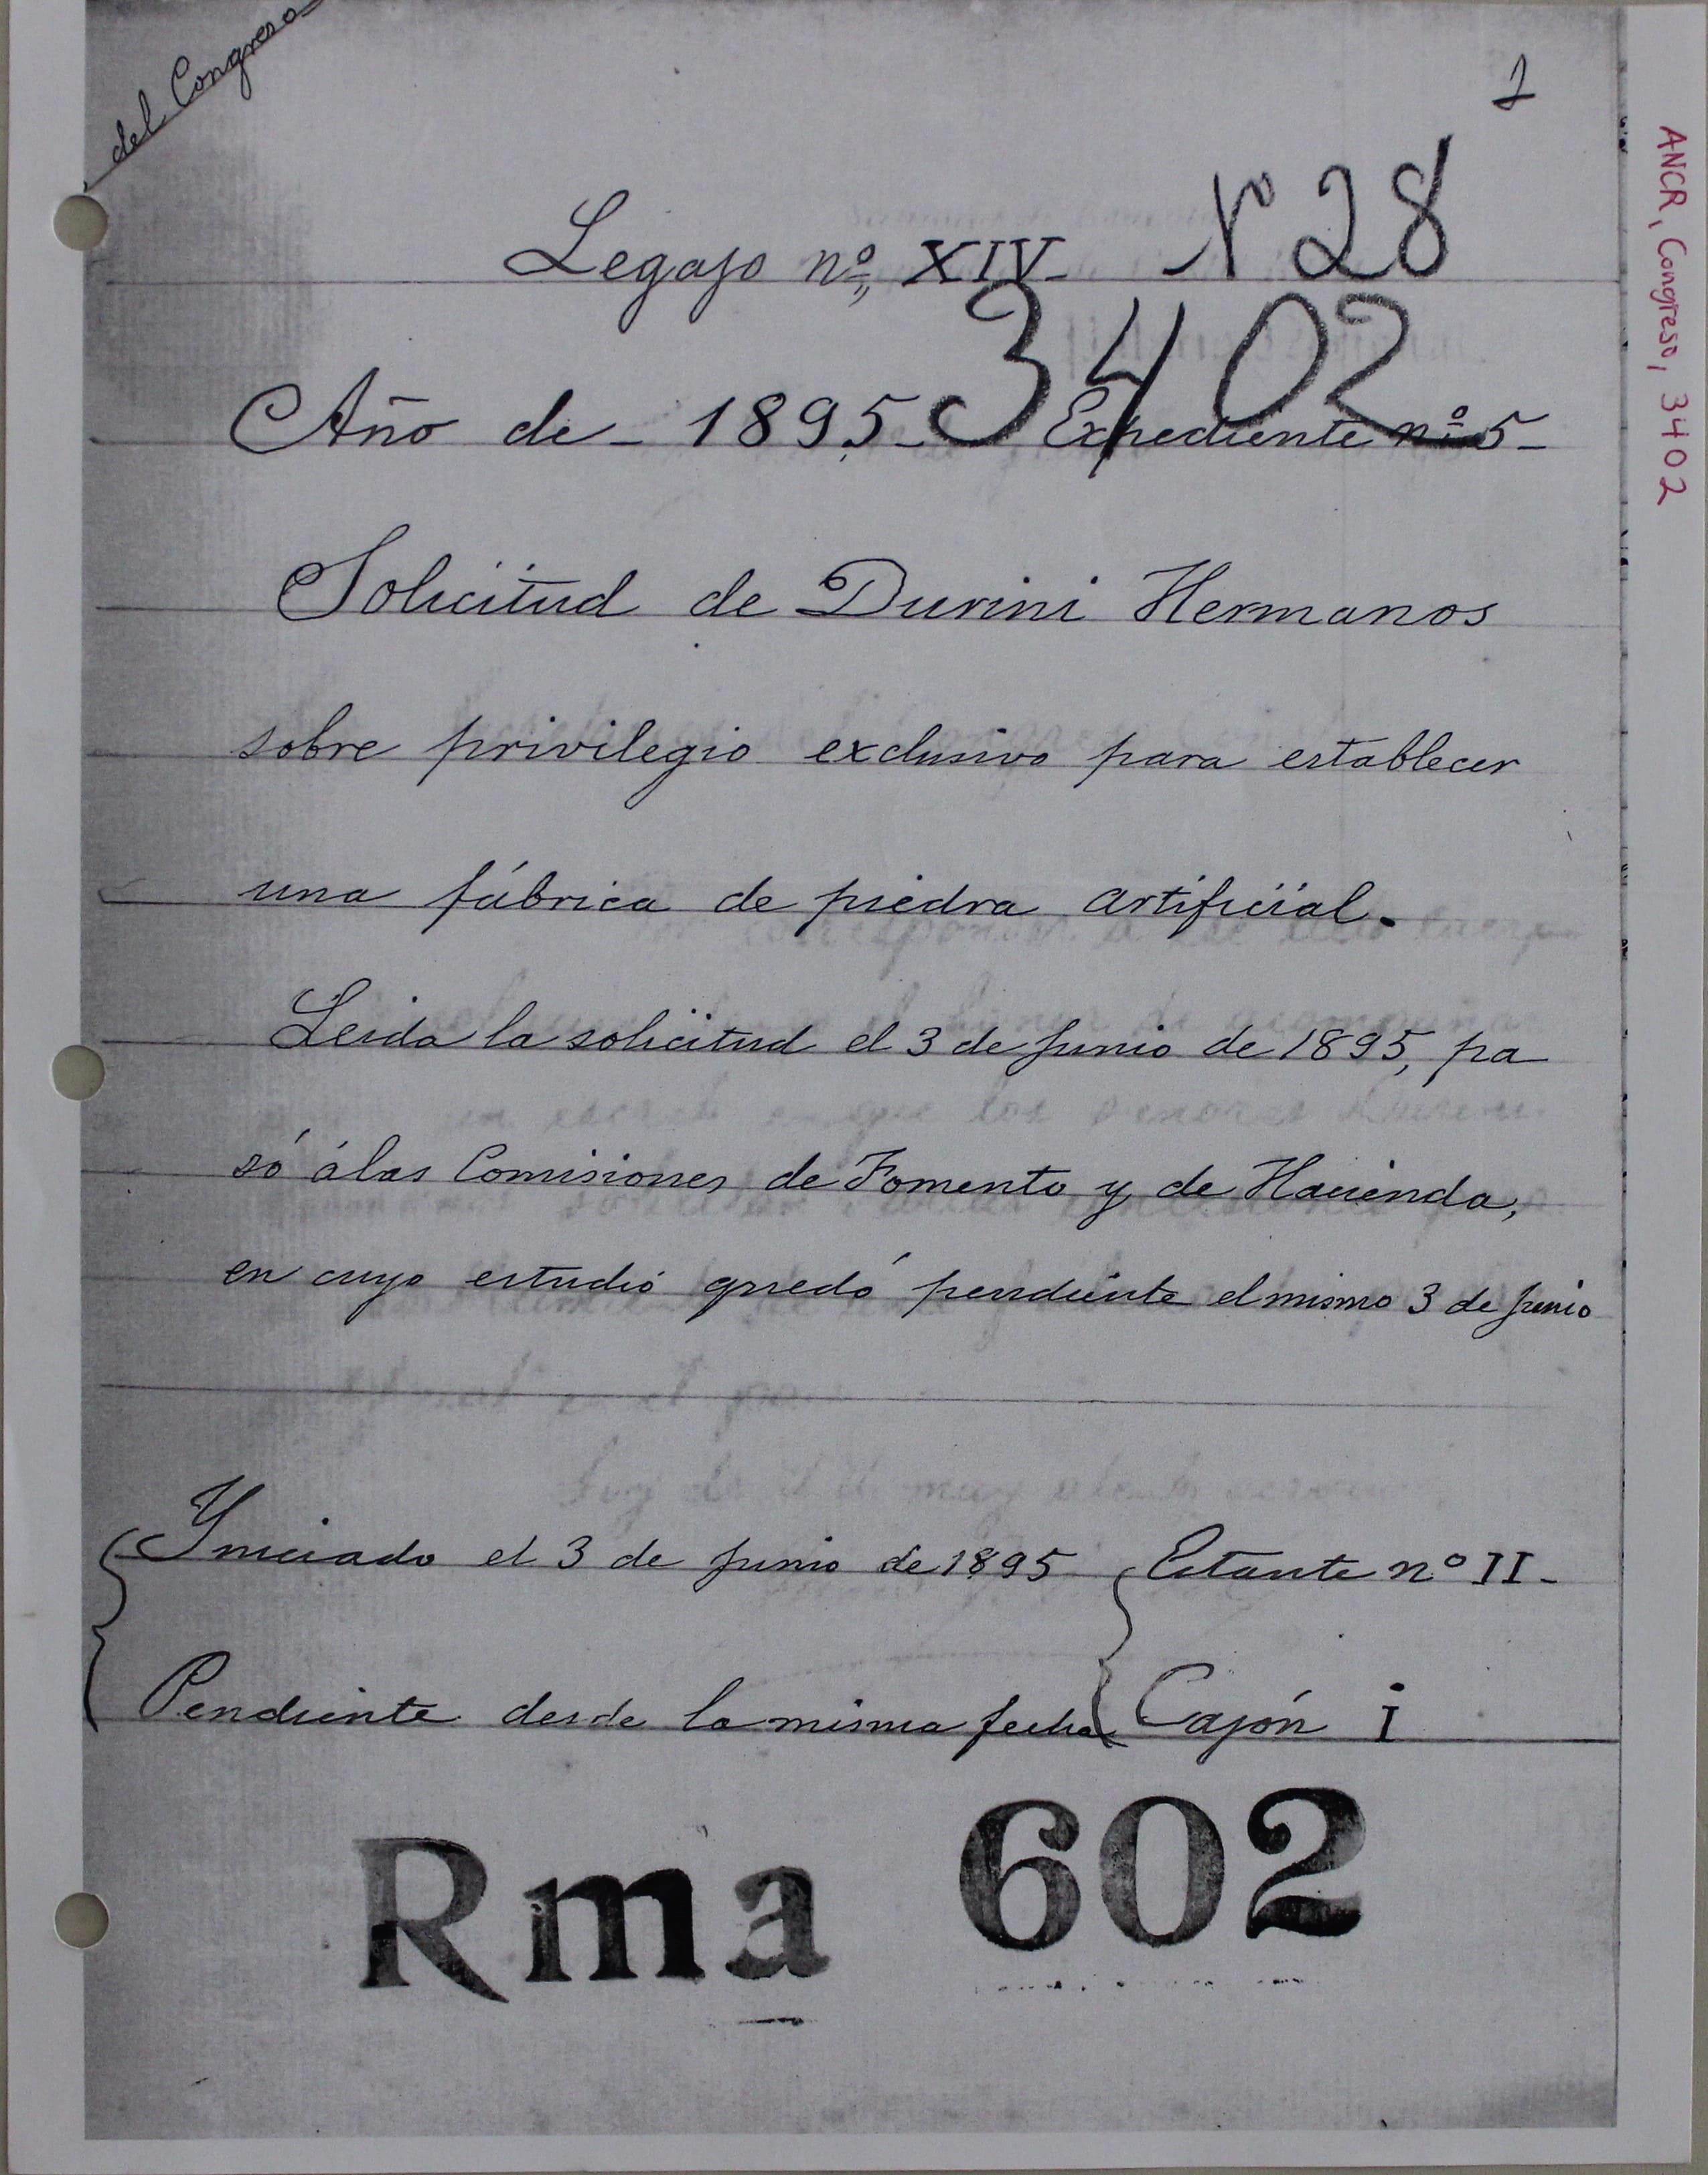 del Congreso
1
Legajo nº, XIV- Nº 28
3402
Año de - 1895- Expediente nº 5-
Solicitud de Durini Hermanos
sobre privilegio exclusivo para establecer
una fábrica de piedra artificial.
Leida la solicitud el 3 de Junio de 1895, pa
só á las Comisiones de Fomento y de Hacienda,
en cuyo estudió quedó pendiente el mismo 3 de Junio
Yniciado el 3 de Junio de 1895 Estante nº II-
Pendiente desde la misma fecha Cajón I
Rma 602
ANCR, Congreso, 3402